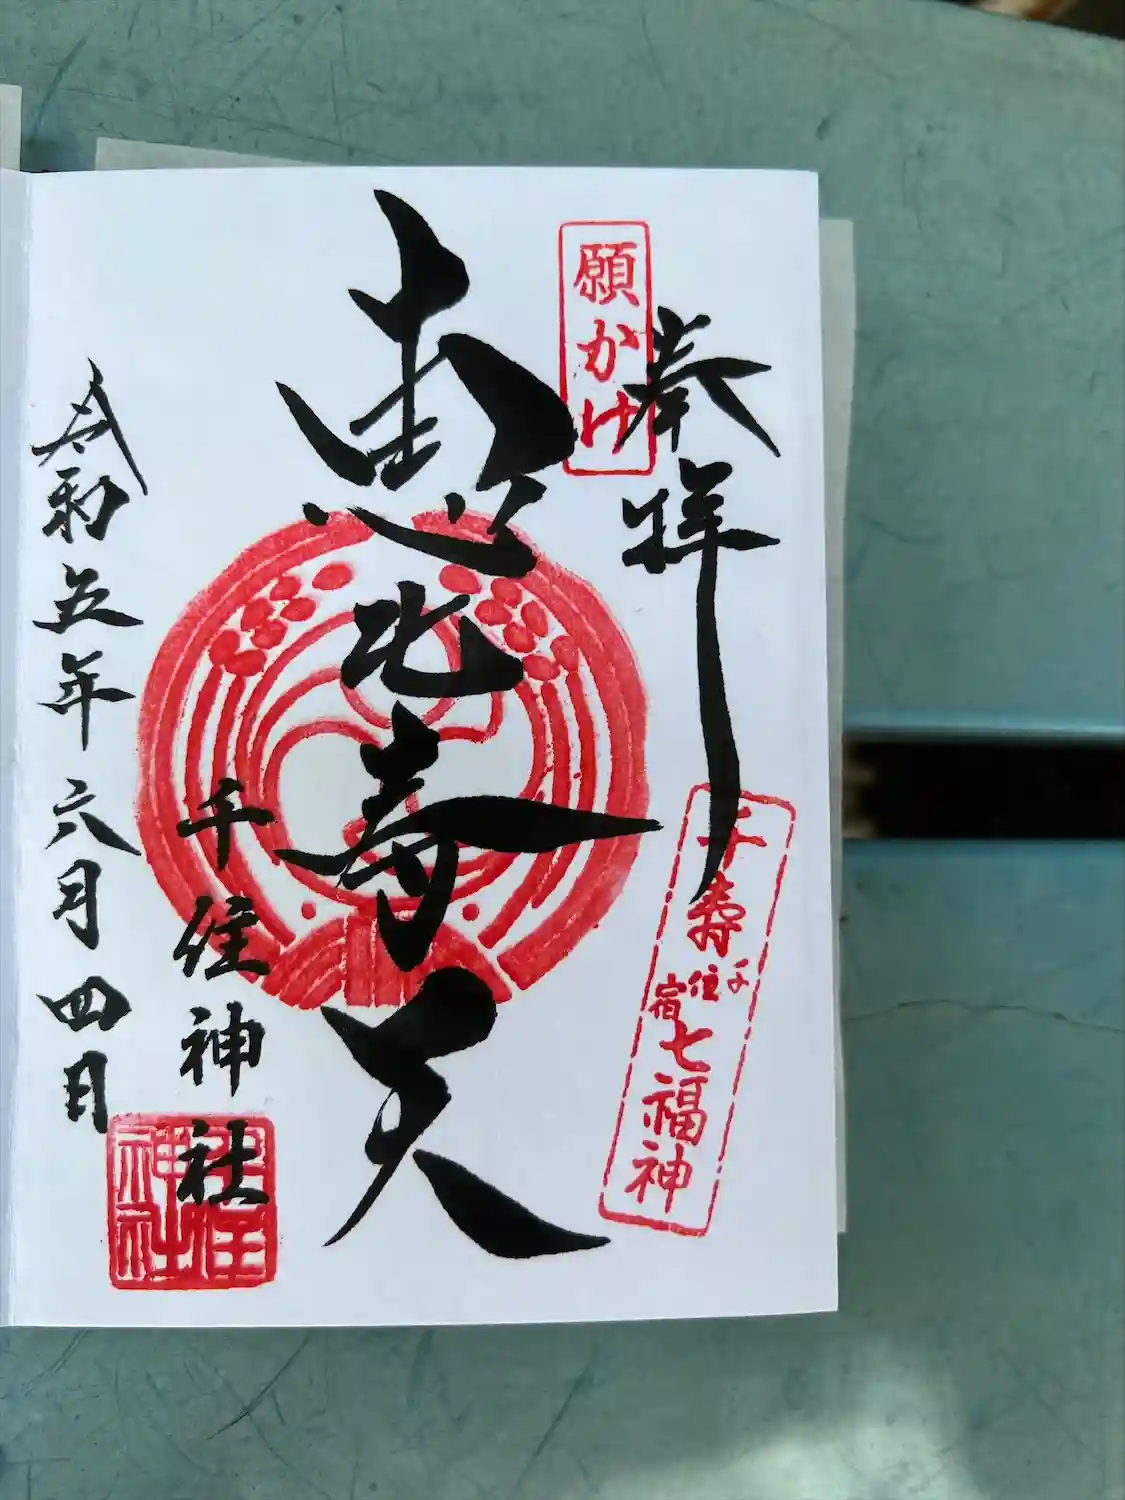 願かけ
奉拝
千寿
千住宿
七福神
恵比寿天
千住神社
令和五年六月四日
千住
神社